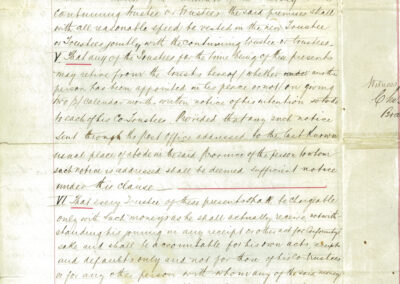 continuing trustee or trustees the said premises shall
with all reasonable speed be vested in the new Trustee
or Trustees jointly with the continuing trustee or trustees
V. That any of the Trustees for the time being of these presents
may retire from the trusts hereof whether under another
person has been appointed in his place or not on giving
two calendar months written notice of his intention so to do
to each of his Co Trustees. Provided that any such notice
sent through the post office addressed to the last known
usual place of abode in the said Province of the person to whom
such notice is addressed shall be deemed sufficient notice
under this clause
VI That every Trustee of these presents shall be chargeable
only with such moneys as he shall actually receive notwith
standing his joining in any receipt or other act for conformity
sake and shall be accountable for his own acts receipts
and defaults only and not for those of his co trustees
or for any other person with whom any of the said money
Witness